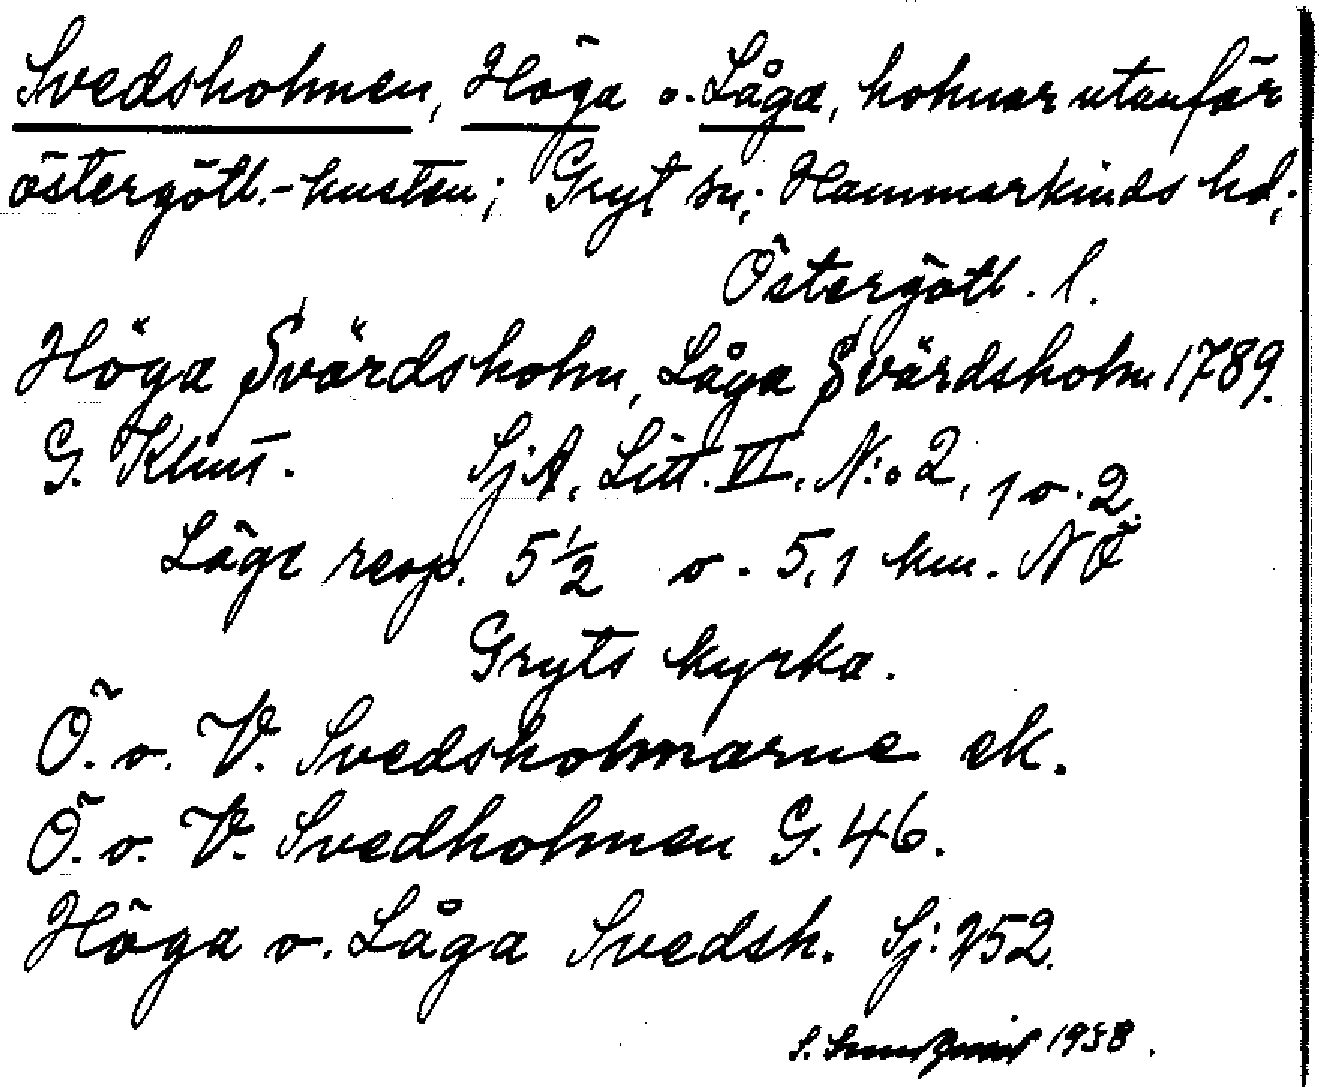 Svedsholmen, Höga o. Låga, holmar utanför
östergötl.-kusten; Gryt sn; Hammarkinds hd;
Östergötl. l.
Höga Svärdsholm, Låga Svärdsholm 1789.
G. Klint. SjA, Litt. VI. N:o 2, 1 o. 2.
Läge resp. 5 1/2 o. 5,1 km. NÖ
Gryts kyrka.
Ö. o. V. Svedsholmarne ek.
Ö. o. V. Svedholmen G. 46.
Höga o. Låga Svedsh. Sj: 252.
S. 1938.